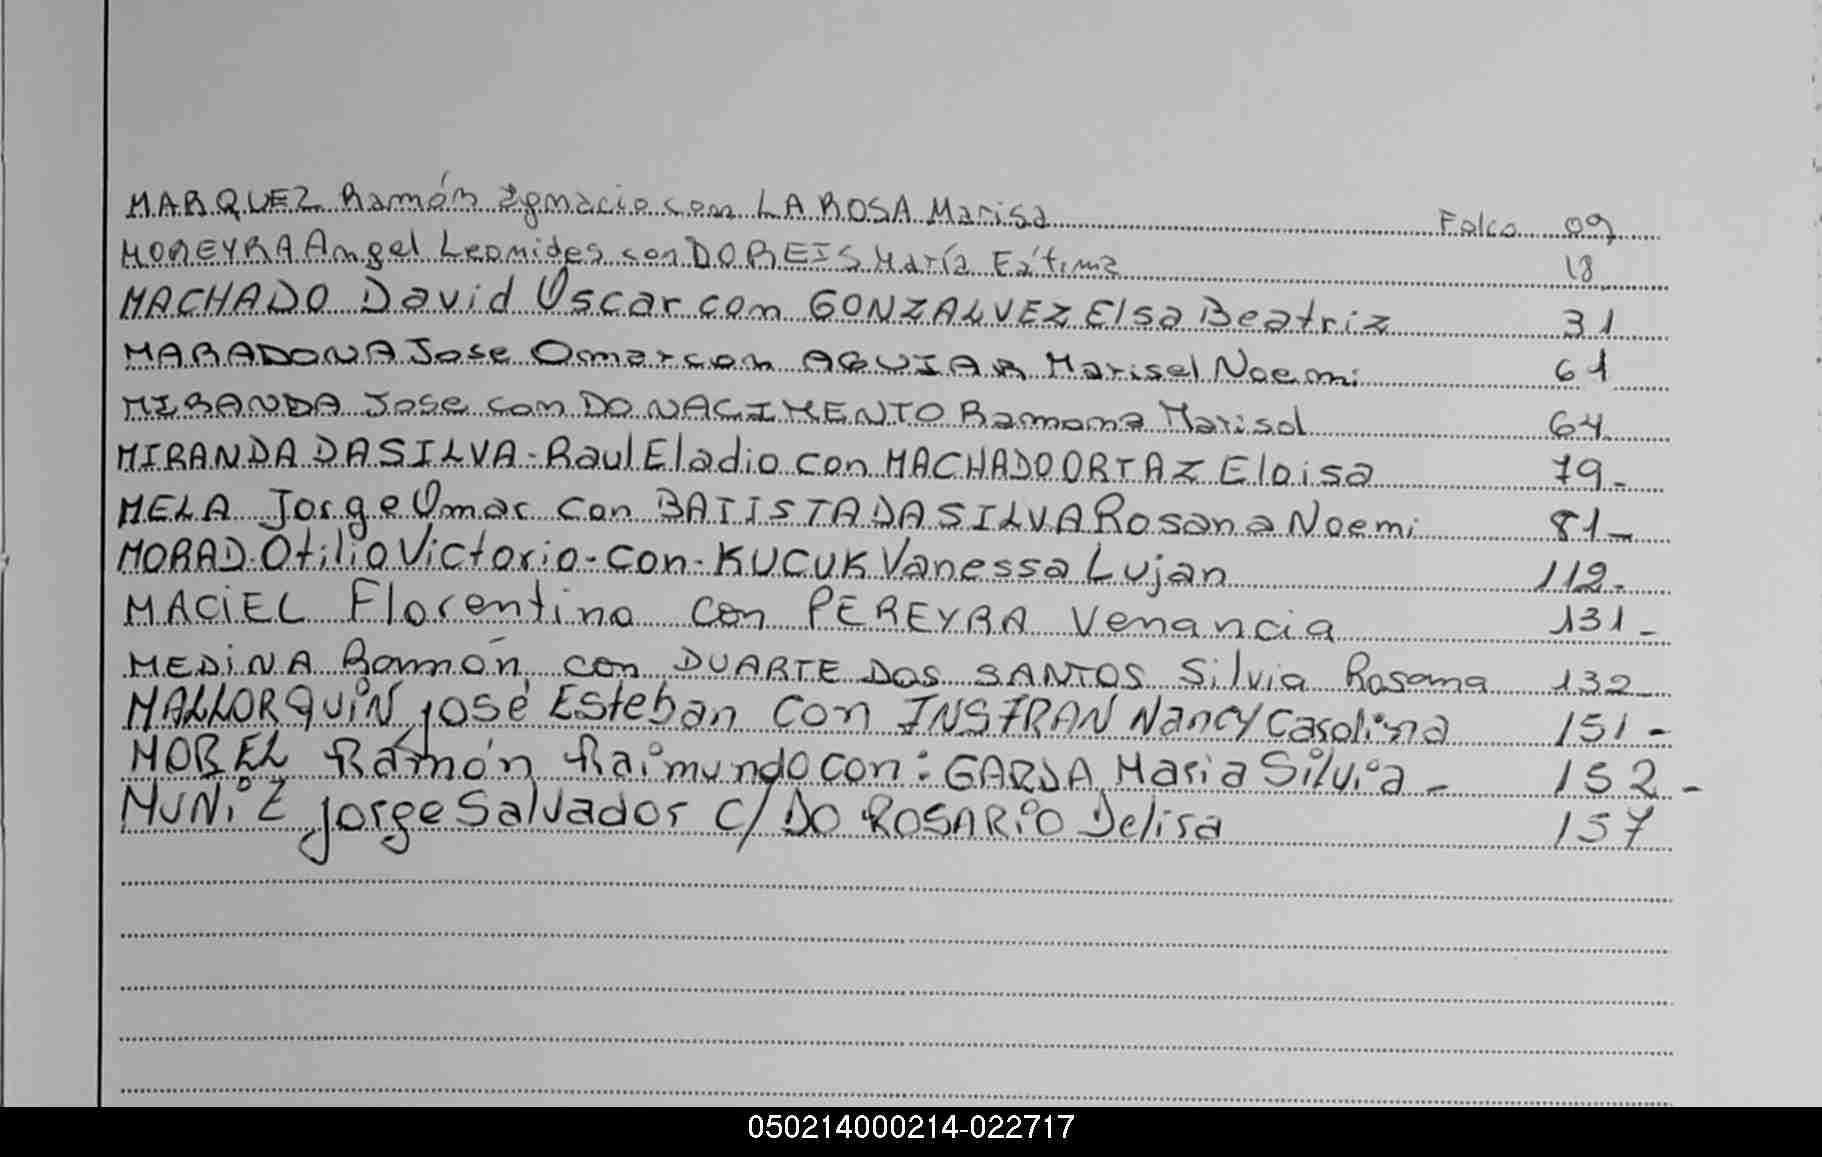 MARQUEZ Ramón Ignacio con LA ROSA Marisa Folio 09
MOREYRA Angel Leonides con DO REIS María Fátima 18
MACHADO David Oscar con GONZALVEZ Elsa Beatriz 31
MARADONA Jose Omar con AGUIAR Marisel Noemi 61
MIRANDA Jose con DO NACIMENTO Ramona Marisol 64
MIRANDA DA SILVA - Raul Eladio con MACHADO ORTAZ Eloisa 79-
MELA Jorge Omar con BATISTA DA SILVA Rosana Noemi 81-
MORAD Otilio Victorio - con - KUCUK Vanessa Lujan 112-
MACIEL Florentino con PEREYRA Venancia 131-
MEDINA Ramón con DUARTE DOS SANTOS Silvia Rosana 132
MALLORQUIN José Esteban con INSFRAN Nancy Carolina 151-
MOREL Ramón Raimundo con: Maria Silvia - 152-
MUNIZ Jorge Salvador c/ DO ROSARIO Delisa 157
050214000214-022717